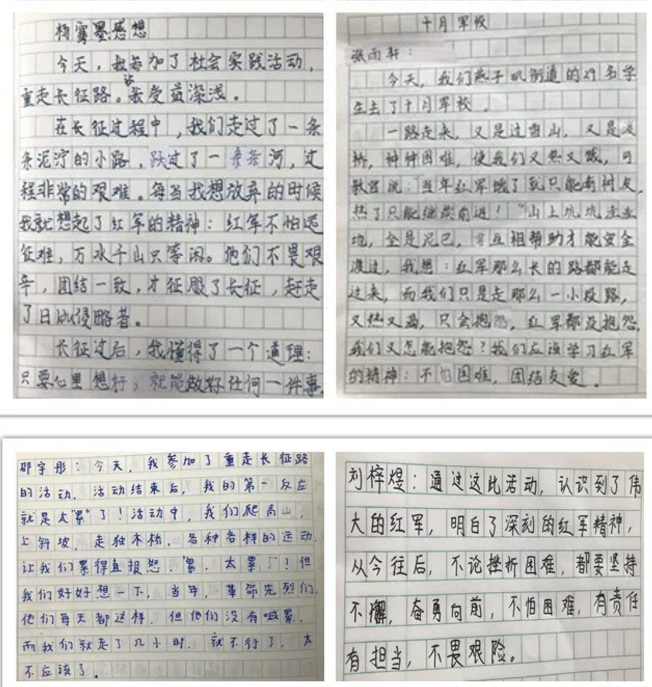 杨雪墨感想
今天，我参加了社会实践活动，
重走长征路。我受益深浅。
在长征过程中，我们走过了一条
条泥泞的小路，跃过了一条条河，过
程非常的艰难。每当我想放弃的时候
我就想起了红军的精神：红军不怕远
征难，万水千山只等闲。他们不畏艰
辛，团结一致，才征服了长征，赶走
了日侵略者。
长征过后，我懂得了一个道理：
只要心里想好，就能做好任何一件事
十月军校
张雨轩：
今天，我们燕子矶街道的29名学
生去了十月军校。
一路走来，又是过雪山，又是
桥，种种困难，使我们又热又饿，可
教官说：当年红军饿了就只能啃树皮，
热了只能继续前进！"山上坑坑洼洼
地，全是泥巴，互相帮助才能安全
渡过，我想：红军那么长的路都能走
过来，而我们只是走那么一小段路，
又热又累，只会抱怨，红军都没抱怨，
我们又怎能抱怨？我们应该学习红军
的精神：不怕困难，团结友爱。
邵宇彤：今天，我参加了重走长征路
的活动，活动结束后，我的第一反应
就是太"累"了！活动中，我们爬高山，
上斜坡，走独木桥，各种各样的运动，
让我们累得直报怨"累，太累了"！但
我们好好想一下，当年，革命先烈们，
他们每天都这样，但他们没有喊累，
而我们就走了几小时，就不行了，太
不应该了。
刘梓煜：通过这比活动，认识到了伟
大的红军，明白了深刻的红军精神，
从今往后，不论挫折困难，都要坚持
不懈，奋勇向前，不怕困难，有责任
有担当，不畏艰险。